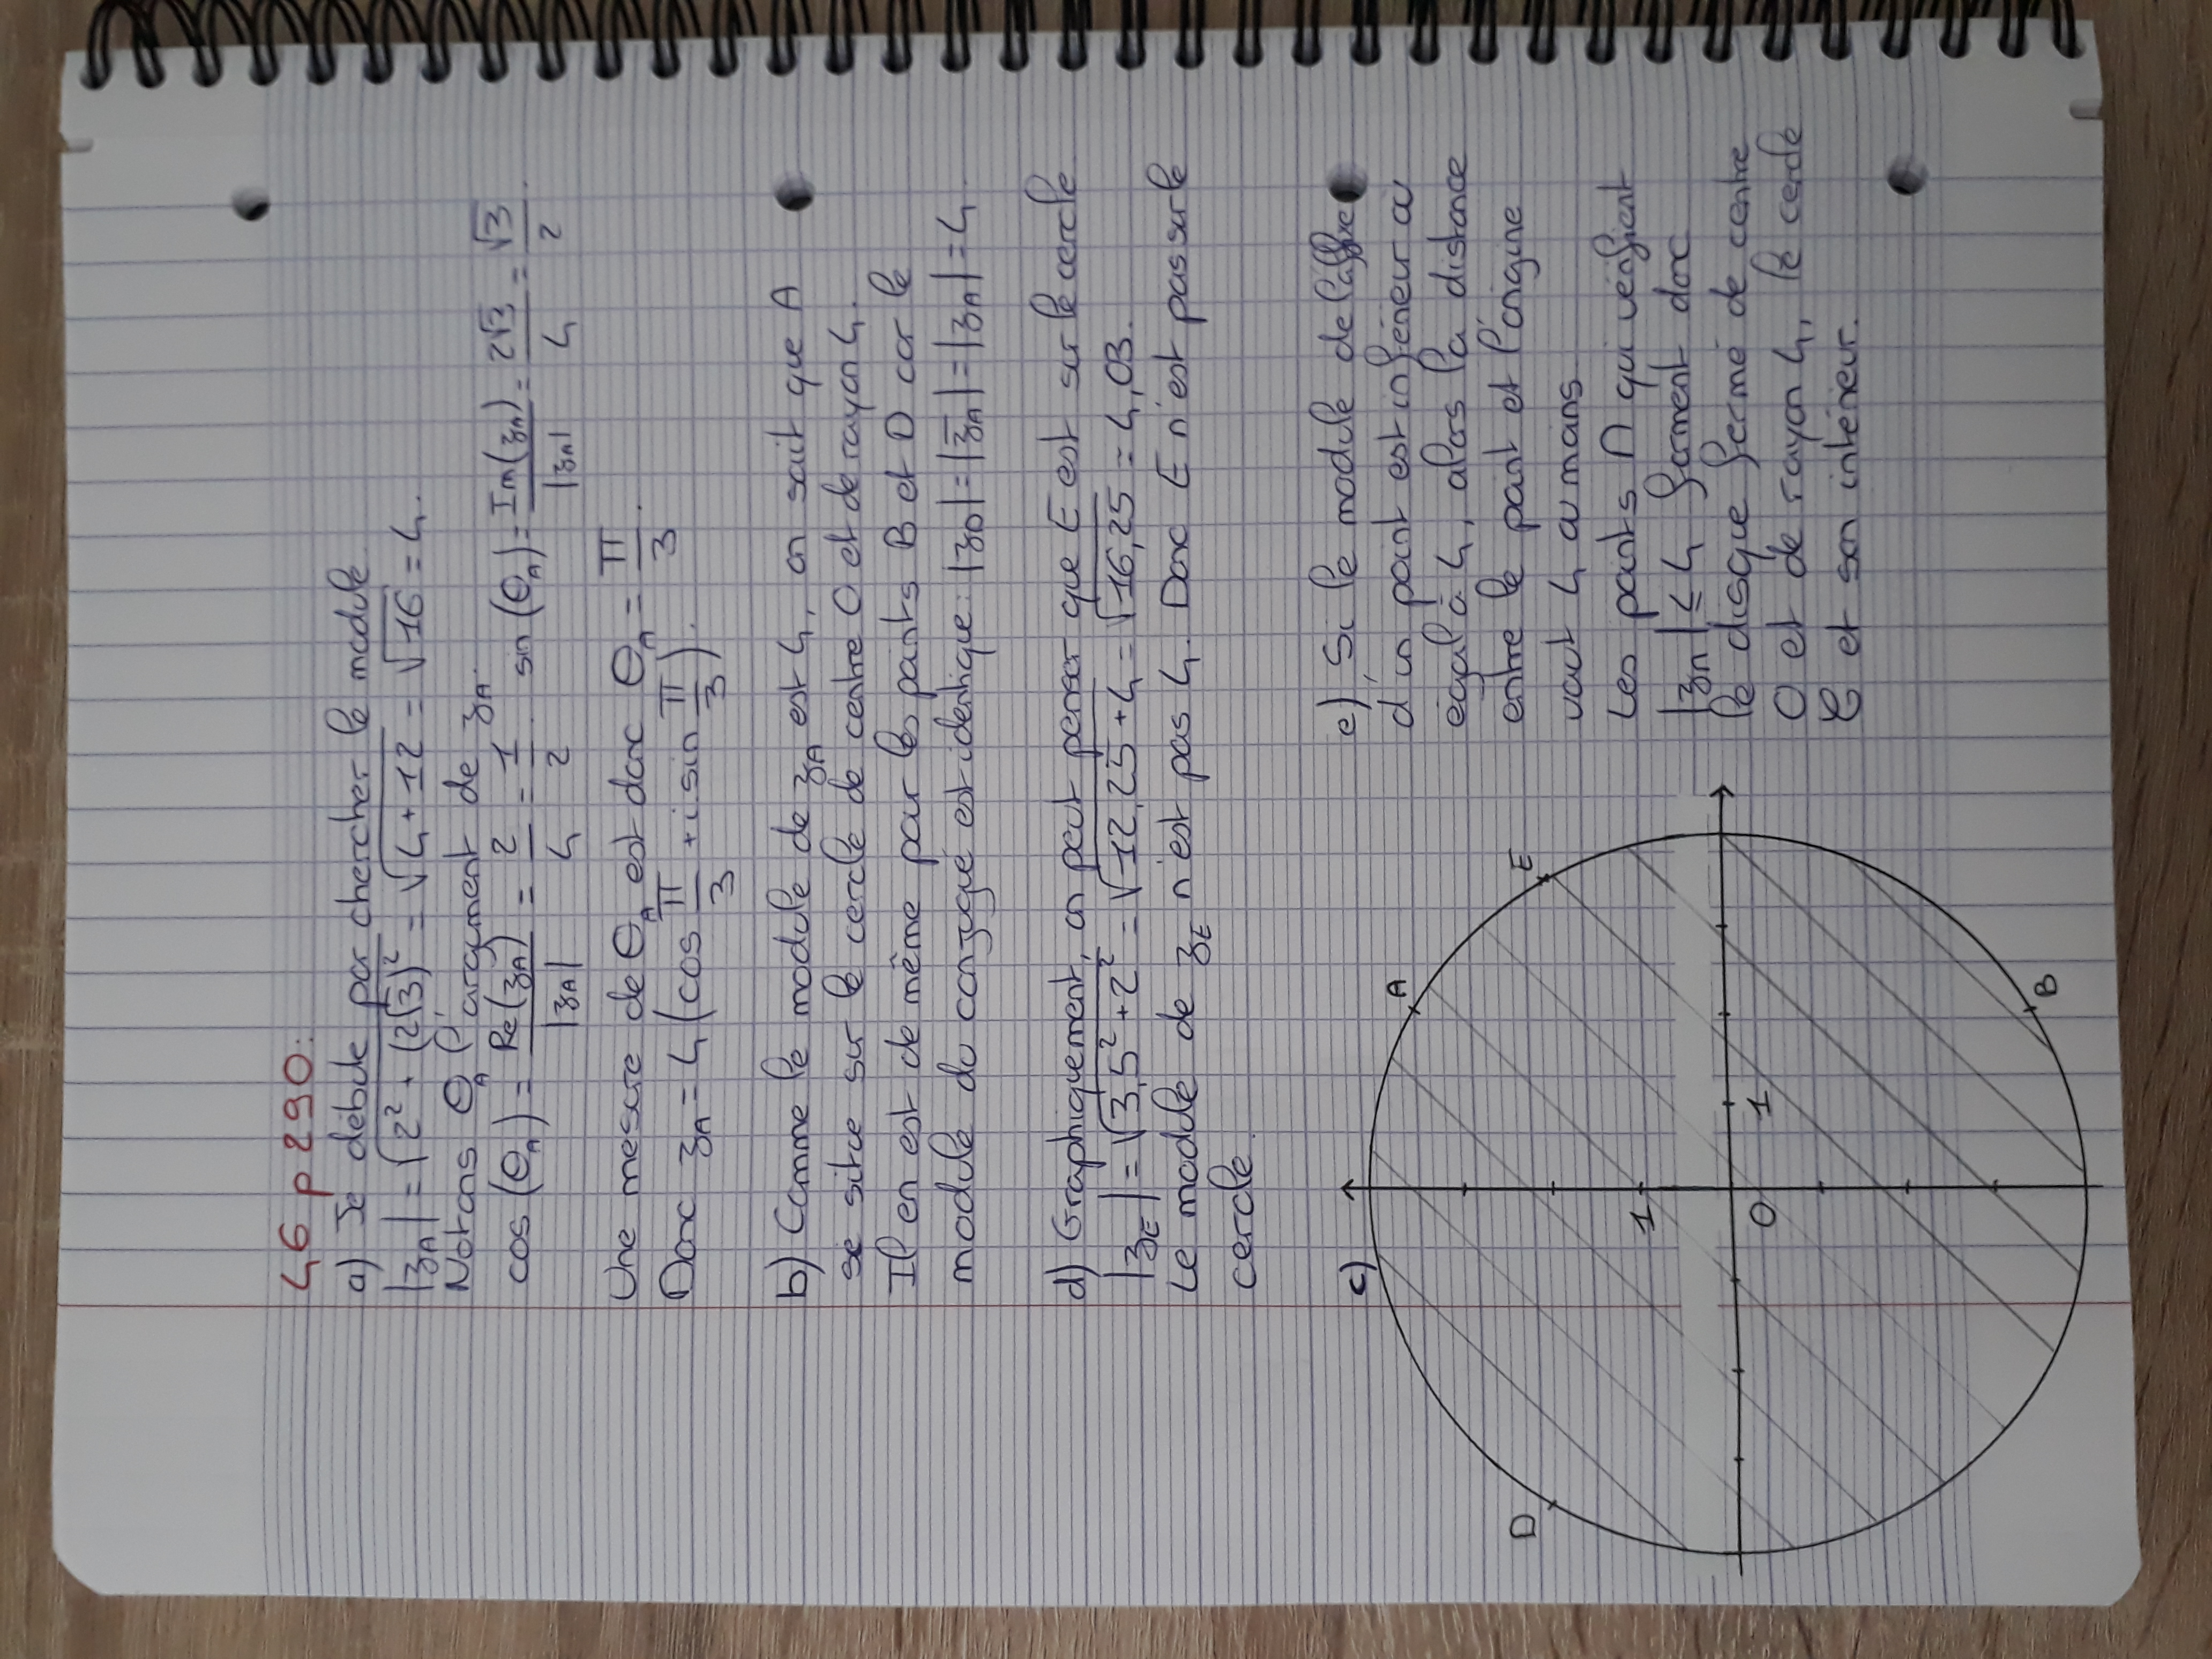 46 p 290:
a) Je débute par chercher le module
|z_A| = √(2² + (2√3)²) = √(4 + 12) = √16 = 4.
Notons θ_A l'argument de z_A.
cos (θ_A) = Re(z_A)/|z_A| = 2/4 = 1/2 sin (θ_A) = Im(z_A)/|z_A| = 2√3/4 = √3/2.
Une mesure de θ_A est donc θ_A = π/3.
Donc z_A = 4 (cos π/3 + i sin π/3).
b) Comme le module de z_A est 4, on sait que A
se situe sur le cercle de centre O et de rayon 4.
Il en est de même pour les points B et D car le
module du conjugué est identique: |z_D| = |z̄_A| = |z_A| = 4
d) Graphiquement, on peut penser que E est sur le cercle
|z_E| = √(3,5² + 2²) = √(12,25 + 4) = √16,25 = 4,03.
Le module de z_E n'est pas 4. Donc E n'est pas sur le
cercle.
c)
A
D
E
1
0 1
B
e) Si le module de l'affixe
d'un point est inférieur ou
égal à 4, alors la distance
entre le point et l'origine
vaut 4 ou moins
Les points M qui vérifient
|z_M| ≤ 4 forment donc
le disque fermé de centre
O et de rayon 4, le cercle
C et son intérieur.